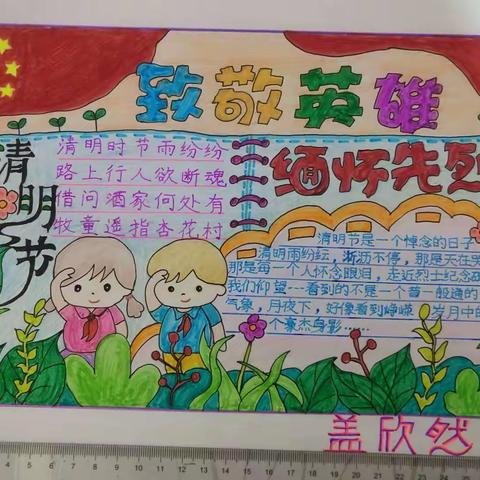 致敬英雄
清明节
清明时节雨纷纷
路上行人欲断魂
借问酒家何处有
牧童遥指杏花村
缅怀先烈
清明节是一个悼念的日子
清明雨纷纭，淅沥不停，那是天在哭
那是每一个人怀念眼泪，走近烈士纪念碑
我们仰望---看到的不是一个普一般通的
气象，月夜下，好像看到峥嵘 岁月中的
个豪杰身影......
盖欣然
4 5 6 7 8 9 10 11 12 13 14 15 16 17 18 19 20 21 22 23 24 25